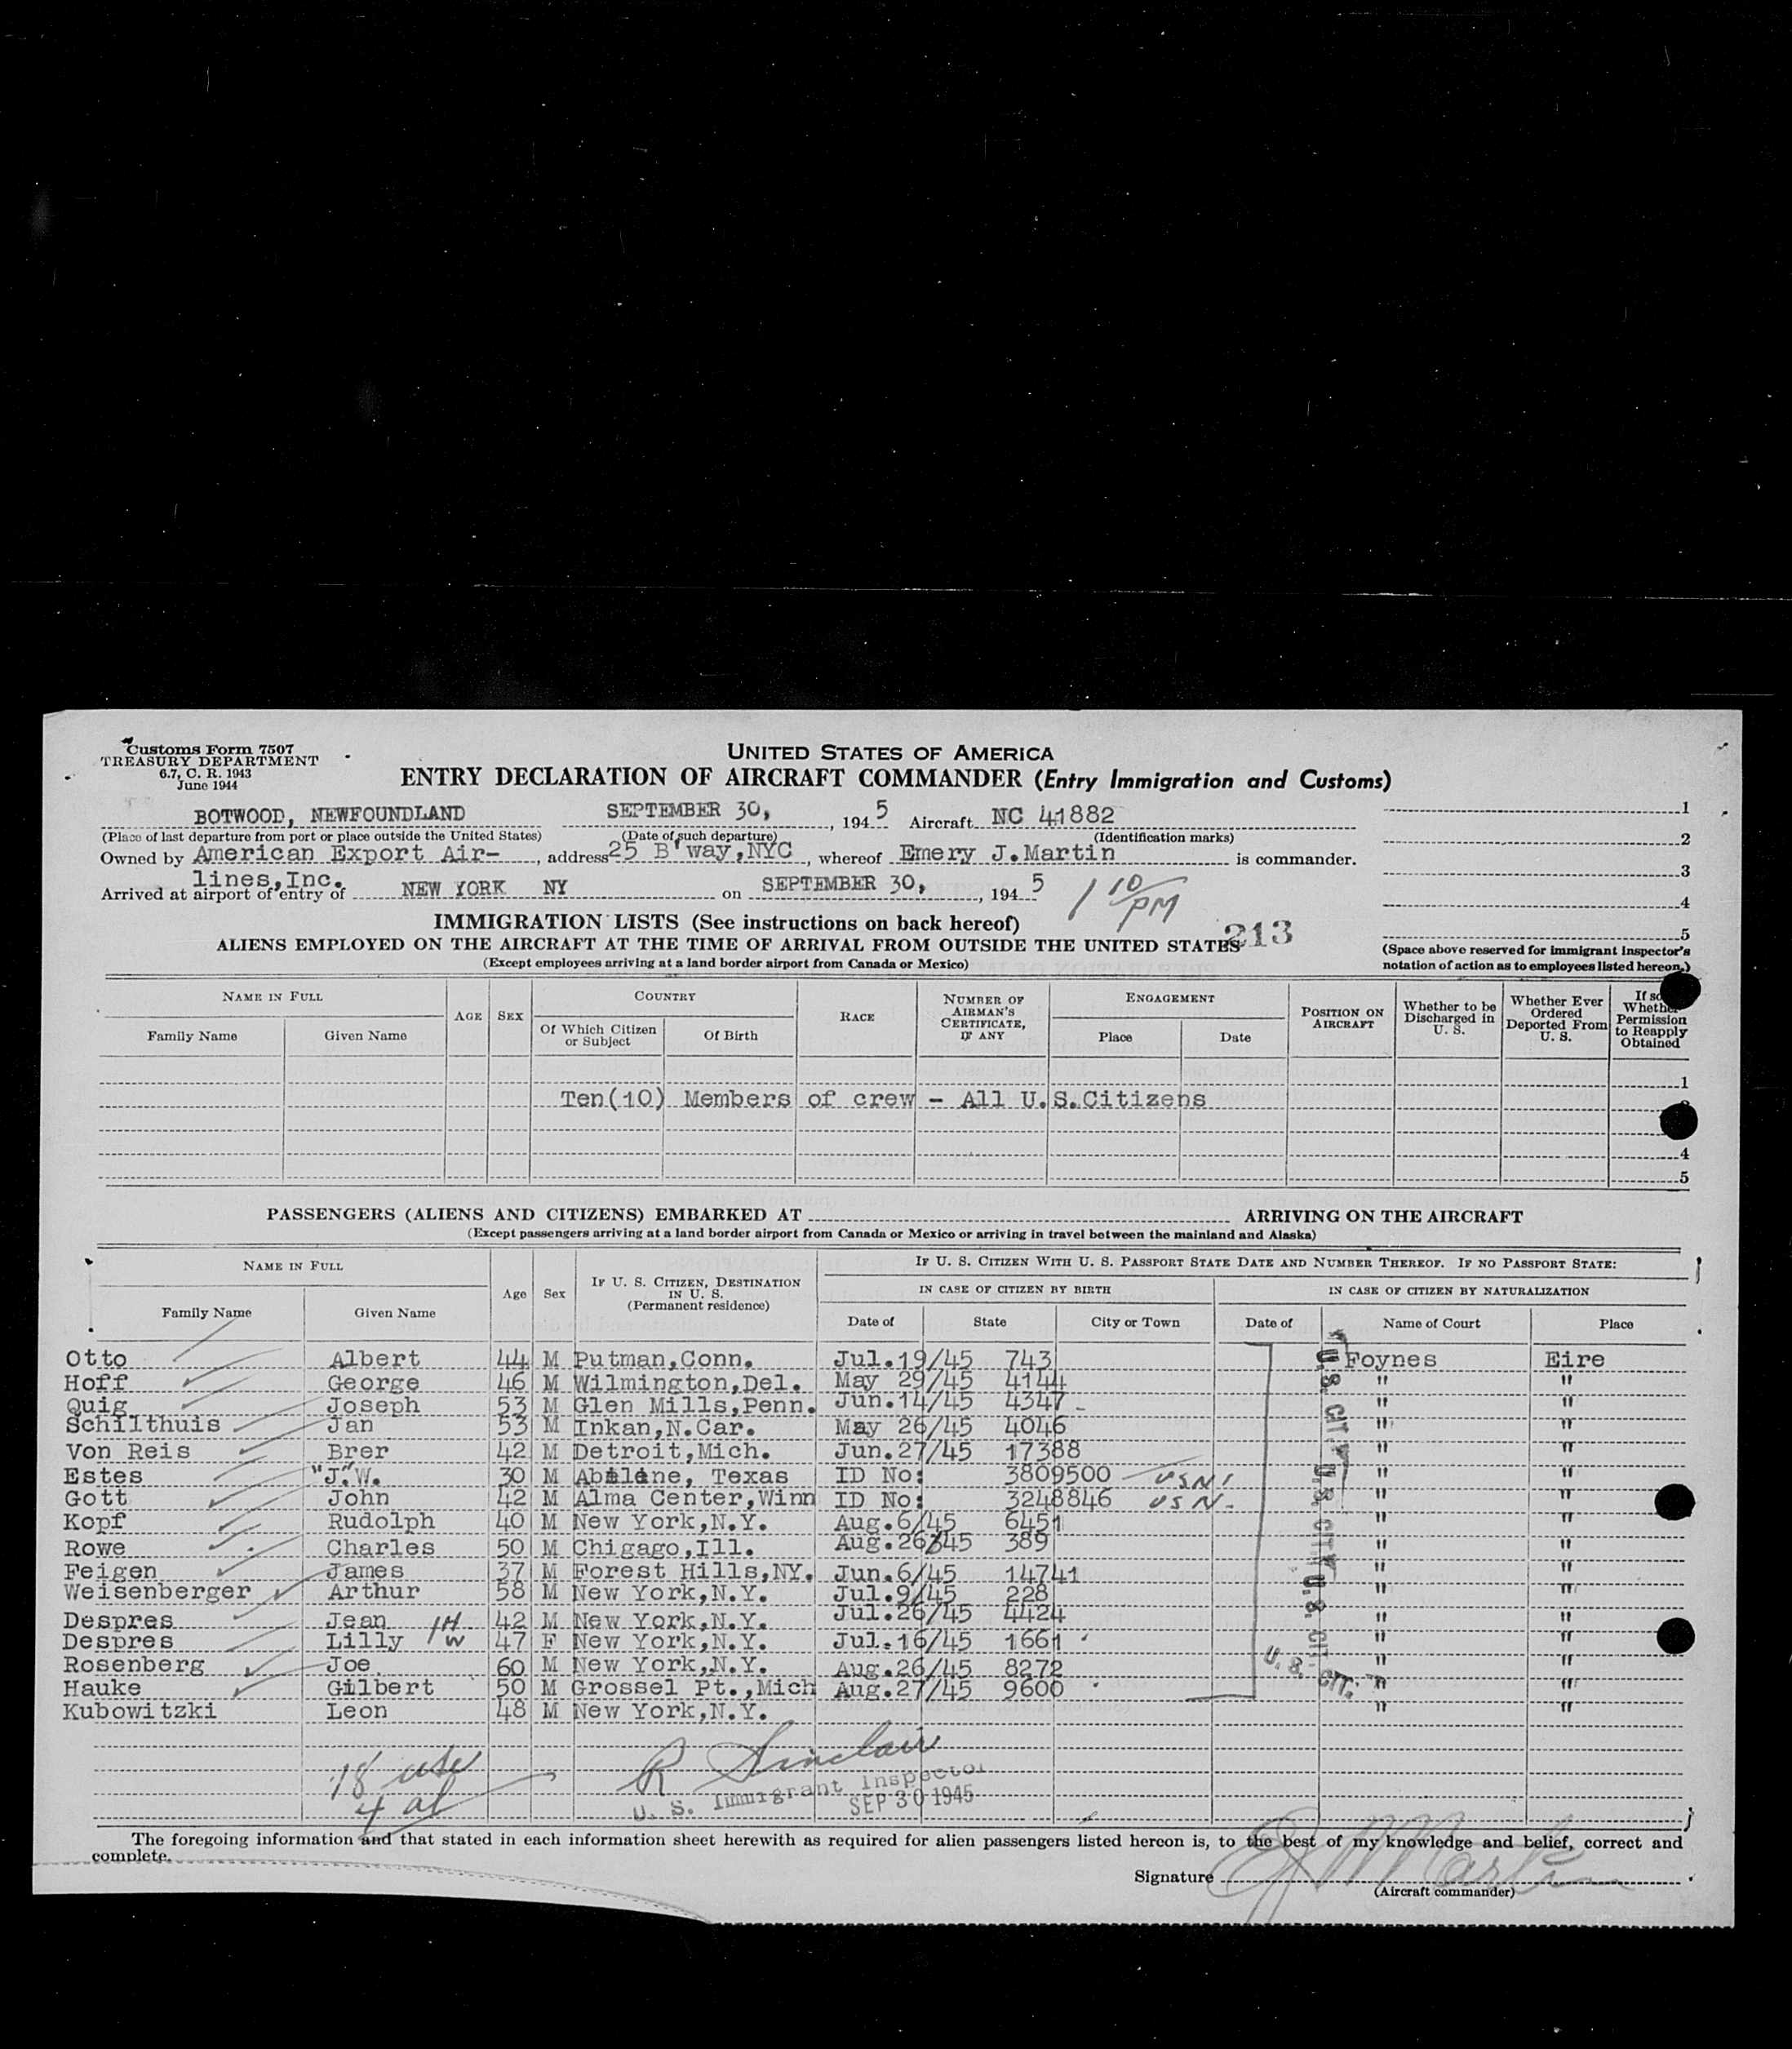 Customs Form 7507
TREASURY DEPARTMENT
6.7, C. R. 1943
June 1944
UNITED STATES OF AMERICA
ENTRY DECLARATION OF AIRCRAFT COMMANDER (Entry Immigration and Customs)
BOTWOOD, NEWFOUNDLAND SEPTEMBER 30, , 194 5 Aircraft NC 41882 1
(Place of last departure from port or place outside the United States) (Date of such departure) (Identification marks) 2
Owned by American Export Air- , address 25 B'way,NYC , whereof Emery J.Martin is commander. 3
lines,Inc.
Arrived at airport of entry of NEW YORK NY on SEPTEMBER 30, , 194 5 1 10/PM 4
IMMIGRATION LISTS (See instructions on back hereof) 5
ALIENS EMPLOYED ON THE AIRCRAFT AT THE TIME OF ARRIVAL FROM OUTSIDE THE UNITED STATES 213
(Except employees arriving at a land border airport from Canada or Mexico)
(Space above reserved for immigrant inspector's
notation of action as to employees listed hereon.)
NAME IN FULL AGE SEX COUNTRY RACE NUMBER OF AIRMAN'S CERTIFICATE, IF ANY ENGAGEMENT POSITION ON AIRCRAFT Whether to be Discharged in U. S. Whether Ever Ordered Deported From U. S. If so Whether Permission to Reapply Obtained
Family Name Given Name Of Which Citizen or Subject Of Birth Place Date
1
Ten(10) Members of crew - All U.S.Citizens
4
5
PASSENGERS (ALIENS AND CITIZENS) EMBARKED AT ARRIVING ON THE AIRCRAFT
(Except passengers arriving at a land border airport from Canada or Mexico or arriving in travel between the mainland and Alaska)
NAME IN FULL Age Sex IF U. S. CITIZEN, DESTINATION IN U. S. (Permanent residence) IF U. S. CITIZEN WITH U. S. PASSPORT STATE DATE AND NUMBER THEREOF. IF NO PASSPORT STATE:
IN CASE OF CITIZEN BY BIRTH IN CASE OF CITIZEN BY NATURALIZATION
Family Name Given Name Date of State City or Town Date of Name of Court Place
Otto Albert 44 M Putman,Conn. Jul.19/45 743 Foynes Eire
Hoff George 46 M Wilmington,Del. May 29/45 4144 " "
Quig Joseph 53 M Glen Mills,Penn. Jun.14/45 4347 " "
Schilthuis Jan 53 M Inkan,N.Car. May 26/45 4046 " "
Von Reis Brer 42 M Detroit,Mich. Jun.27/45 17388 " "
Estes "J."W. 30 M Abilene, Texas ID No: 3809500 USN " "
Gott John 42 M Alma Center,Winn ID No: 3248846 USN " "
Kopf Rudolph 40 M New York,N.Y. Aug.6/45 6451 " "
Rowe Charles 50 M Chigago,Ill. Aug.26/45 389 " "
Feigen James 37 M Forest Hills,NY. Jun.6/45 14741 " "
Weisenberger Arthur 58 M New York,N.Y. Jul.9/45 228 " "
Despres Jean H 42 M New York,N.Y. Jul.26/45 4424 " "
Despres Lilly W 47 F New York,N.Y. Jul.16/45 1661 " "
Rosenberg Joe 60 M New York,N.Y. Aug.26/45 8272 " "
Hauke Gilbert 50 M Grossel Pt.,Mich Aug.27/45 9600 " "
Kubowitzki Leon 48 M New York,N.Y. " "
U. S. CIT.
U. S. CIT.
U. S. CIT.
U. S. CIT.
18 usc
4 al
R Sinclair
U. S. Immigrant Inspector
SEP 30 1945
The foregoing information and that stated in each information sheet herewith as required for alien passengers listed hereon is, to the best of my knowledge and belief, correct and
complete.
Signature E J Martin
(Aircraft commander)